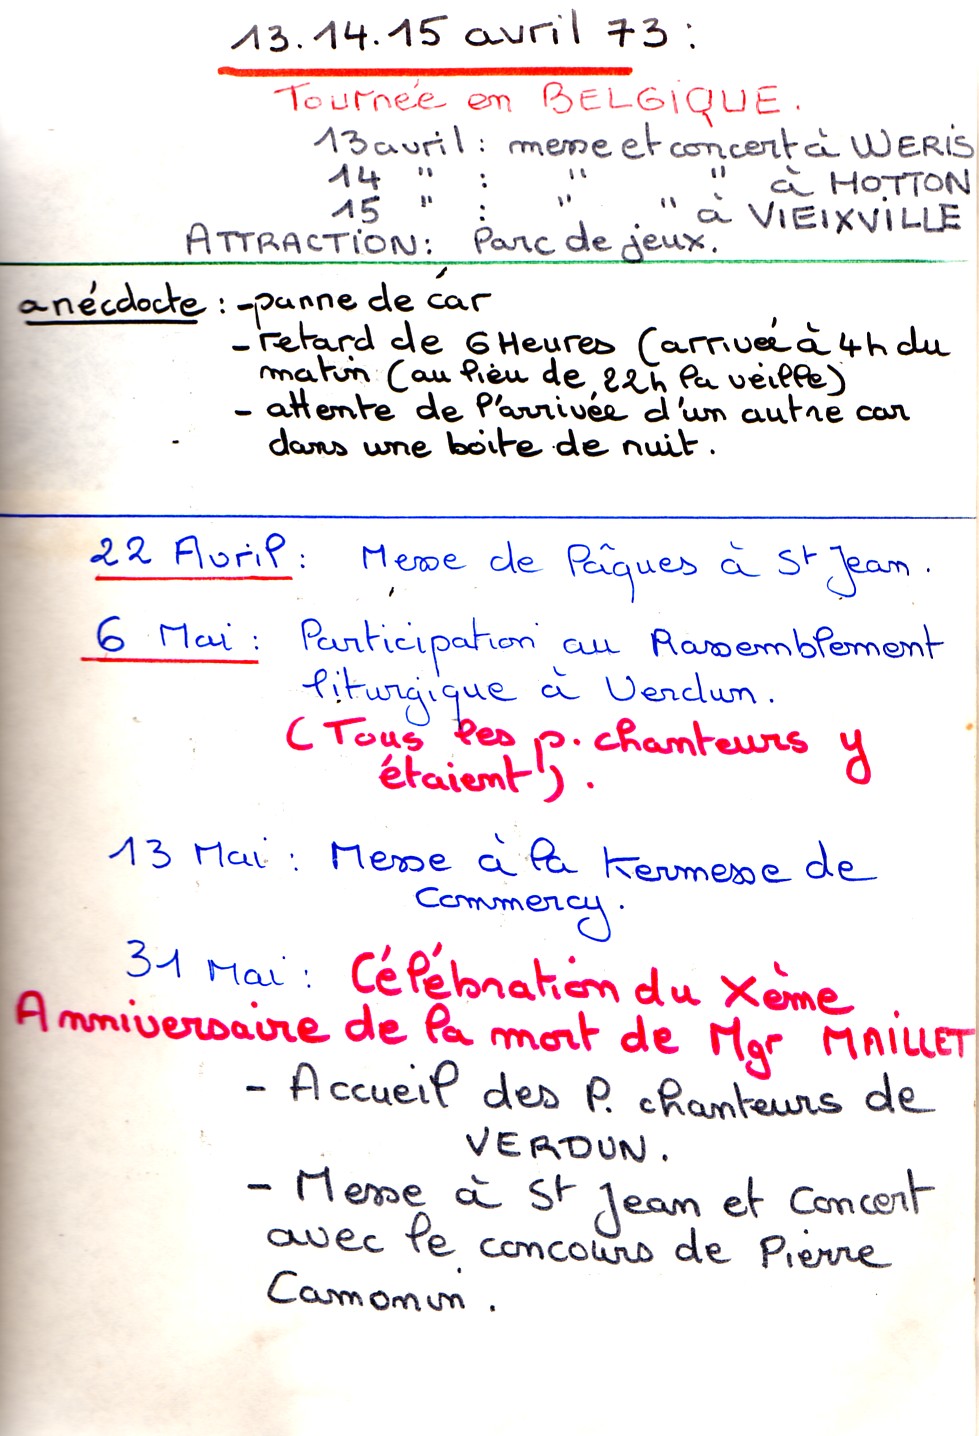 13.14.15 avril 73 :
Tournée en BELGIQUE.
13 avril : messe et concert à WERIS
14 " : " " à HOTTON
15 " : " " à VIEIXVILLE
ATTRACTION : Parc de jeux.
anécdocte : - panne de car
- retard de 6 Heures (arrivée à 4h du
matin (au lieu de 22h la veille)
- attente de l'arrivée d'un autre car
dans une boite de nuit.
22 Avril : Messe de Pâques à St Jean.
6 Mai : Participation au Rassemblement
liturgique à Verdun.
(Tous les p. chanteurs y
étaient).
13 Mai : Messe à la Kermesse de
Commercy.
31 Mai : Célébration du Xème
Anniversaire de la mort de Mgr MAILLET
- Accueil des P. chanteurs de
VERDUN.
- Messe à St Jean et Concert
avec le concours de Pierre
Camonin.